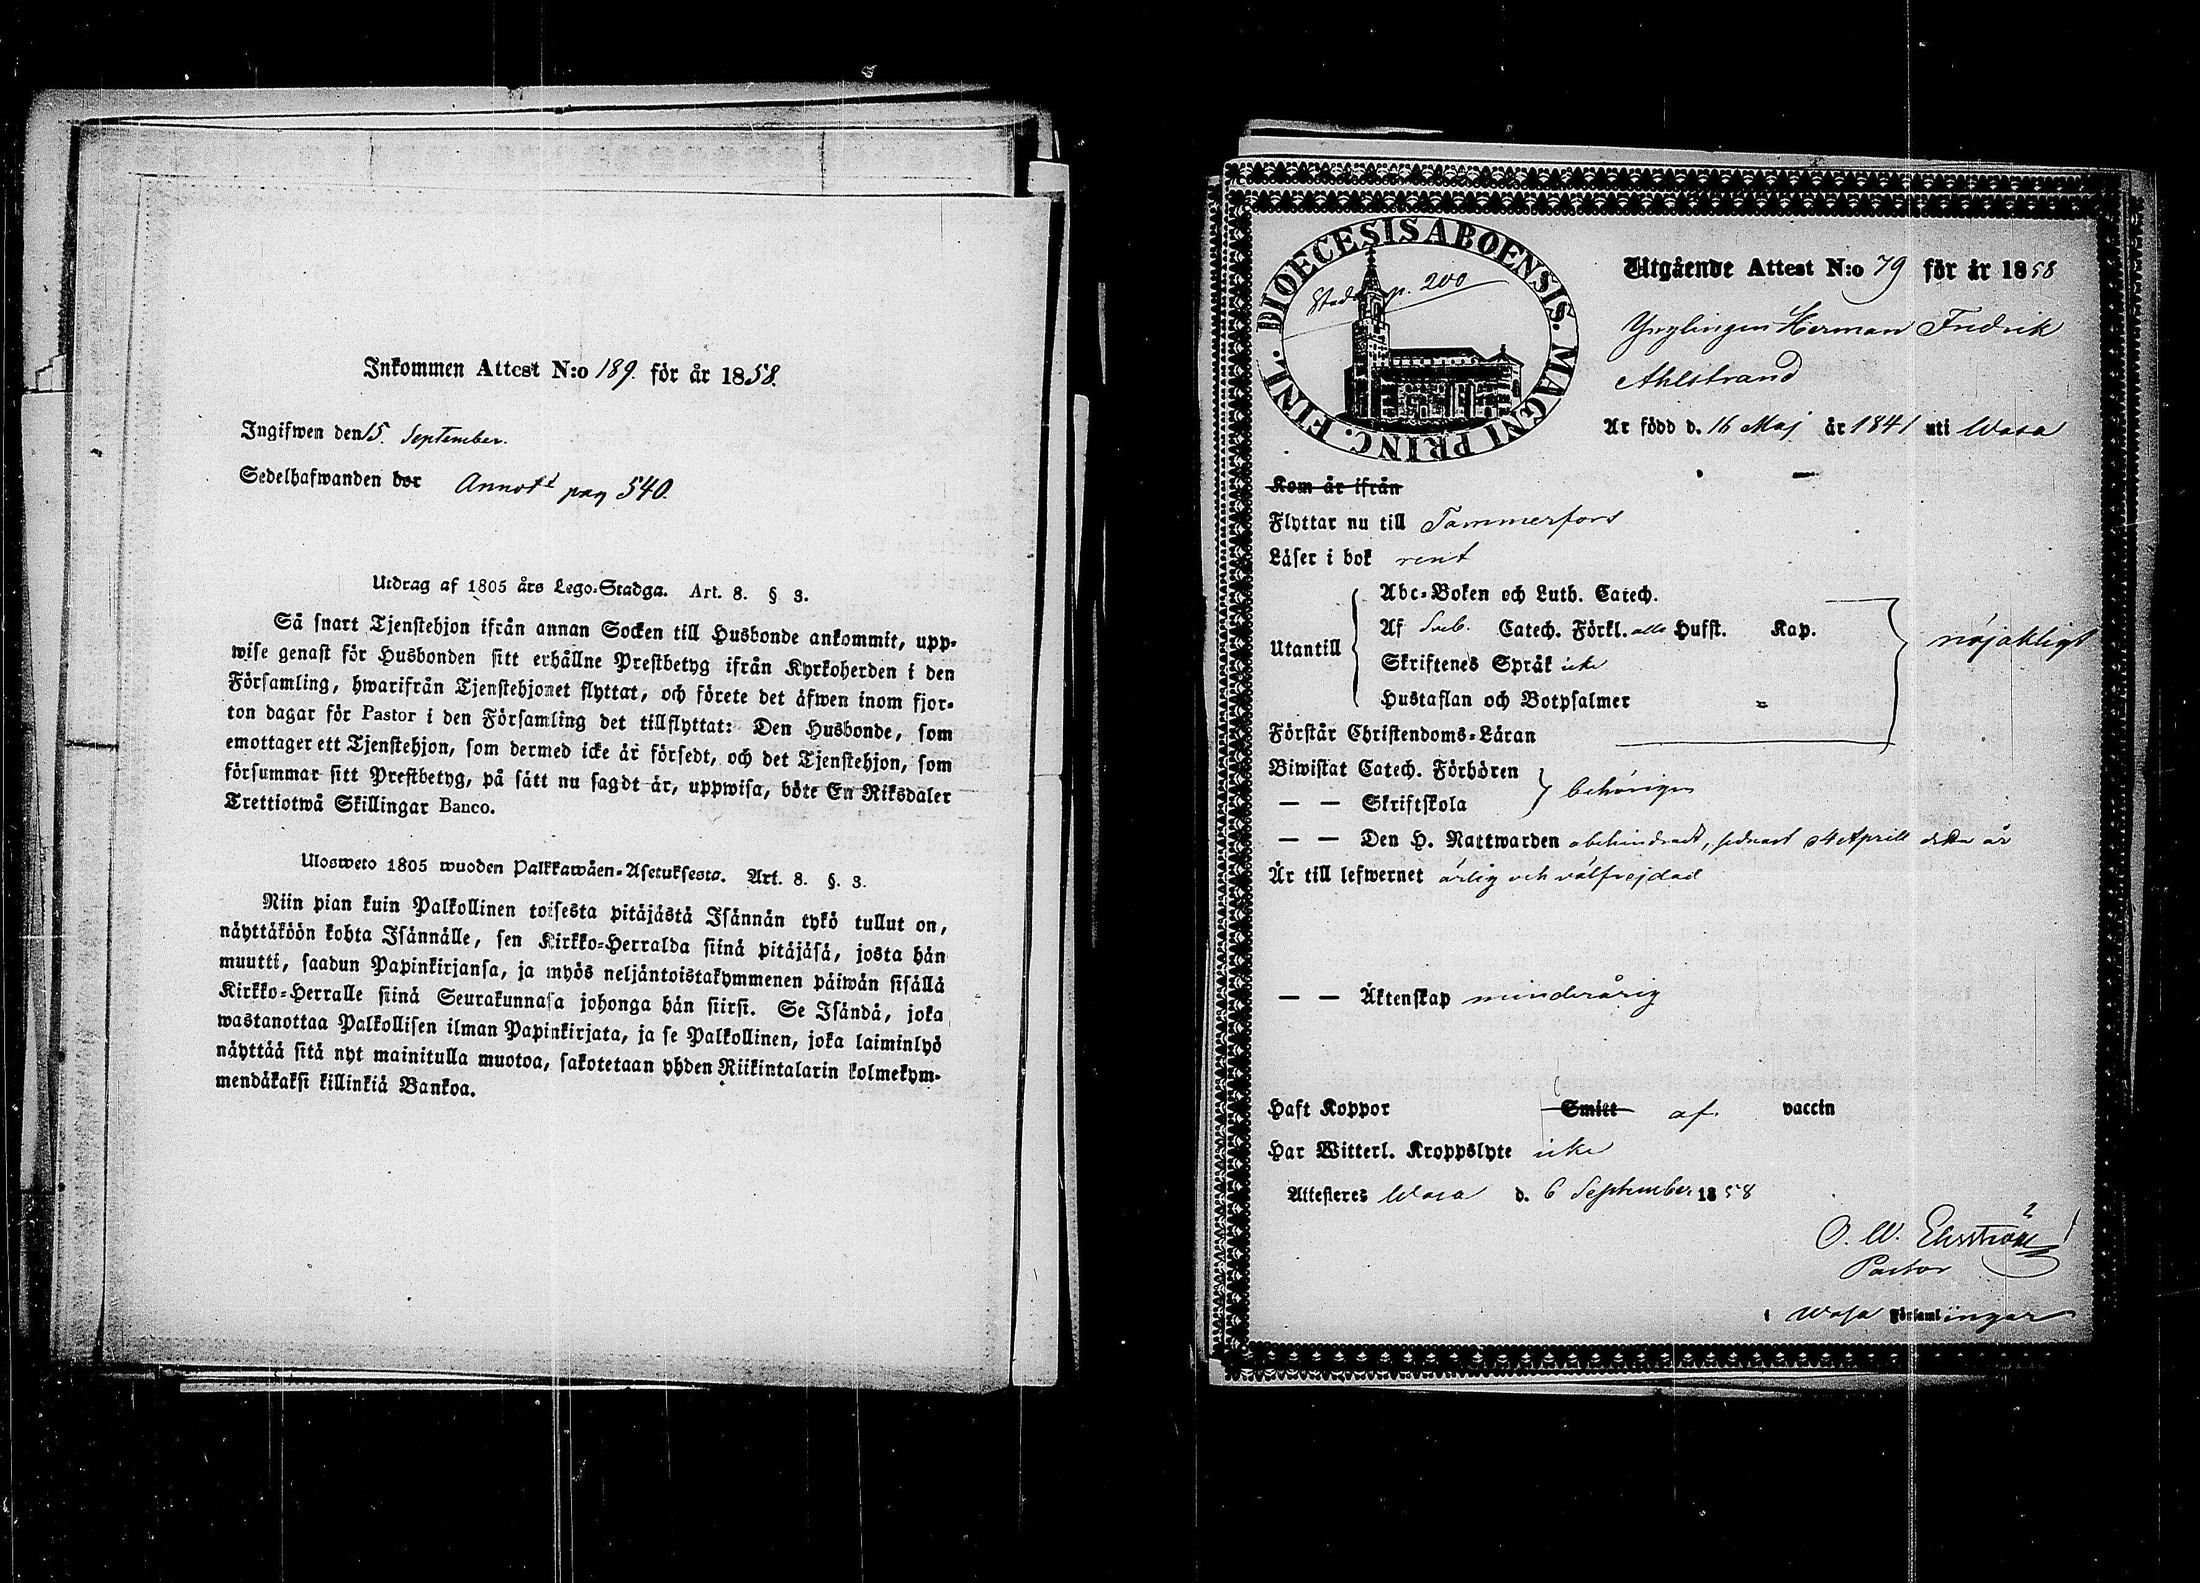 Inkommen Attest N:o 189. för år 1858.
Ingifwen den 15. September.
Sedelhafwanden bor Annot.d pag 540.
Utdrag af 1805 års Lego-Stadga. Art. 8. § 3.
Så snart Tjenstehjon ifrån annan Socken till Husbonde ankommit, upp-
wise genast för Husbonden sitt erhållne Prestbetyg ifrån Kyrkoherden i den
Församling, hwarifrån Tjenstehjonet flyttat, och förete det äfwen inom fjor-
ton dagar för Pastor i den Församling det tillflyttat: Den Husbonde, som
emottager ett Tjenstehjon, som dermed icke är försedt, och det Tjenstehjon, som
försummar sitt Prestbetyg, på sätt nu sagdt är, uppwisa, böte En Riksdaler
Trettiotwå Skillingar Banco.
Ulosweto 1805 wuoden Palkkawäen-Asetuksesta. Art. 8. §. 3.
Niin pian kuin Palkollinen toisesta pitäjästä Isännän tykö tullut on,
näyttäköön kohta Isännälle, sen Kirkko-Herralda siinä pitäjäsä, josta hän
muutti, saadun Papinkirjansa, ja myös neljäntoistakymmenen päiwän sisällä
Kirkko-Herralle siinä Seurakunnasa johonga hän siirsi. Se Isändä, joka
wastanottaa Palkollisen ilman Papinkirjata, ja se Palkollinen, joka laiminlyö
näyttää sitä nyt mainitulla muotoa, sakotetaan yhden Riikintalarin kolmekym-
mendäkaksi killinkiä Bankoa.
DIOECESIS ABOENSIS. MAGNI PRINC. FINL.
p. 200
Utgående Attest N:o 79 för år 1858
Ynglingen Herman Fredrik
Ahlstrand
Är född d. 16 Maj år 1841 uti Wasa
Kom år ifrån
Flyttar nu till Tammerfors
Läser i bok rent
Utantill
Abc-Boken och Luth. Catech.
Af Sveb. Catech. Förkl. alla Hufst. Kap.
Skriftenes Språk icke
Hustaflan och Botpsalmer
nöjaktligt
Förstår Christendoms-Läran
Biwistat Catech. Förhören
— — Skriftskola
behörigen
— — Den H. Nattwarden obehindradt, sednast April detta år
Är till lefwernet ärlig och välfrejdad
— — Äktenskap minderårig
Haft Koppor Smitt af vaccin
Har Witterl. Kroppslyte icke
Attesteres Wasa d. 6 September 1858
O. W.
Pastor
i Wasa Församlingar